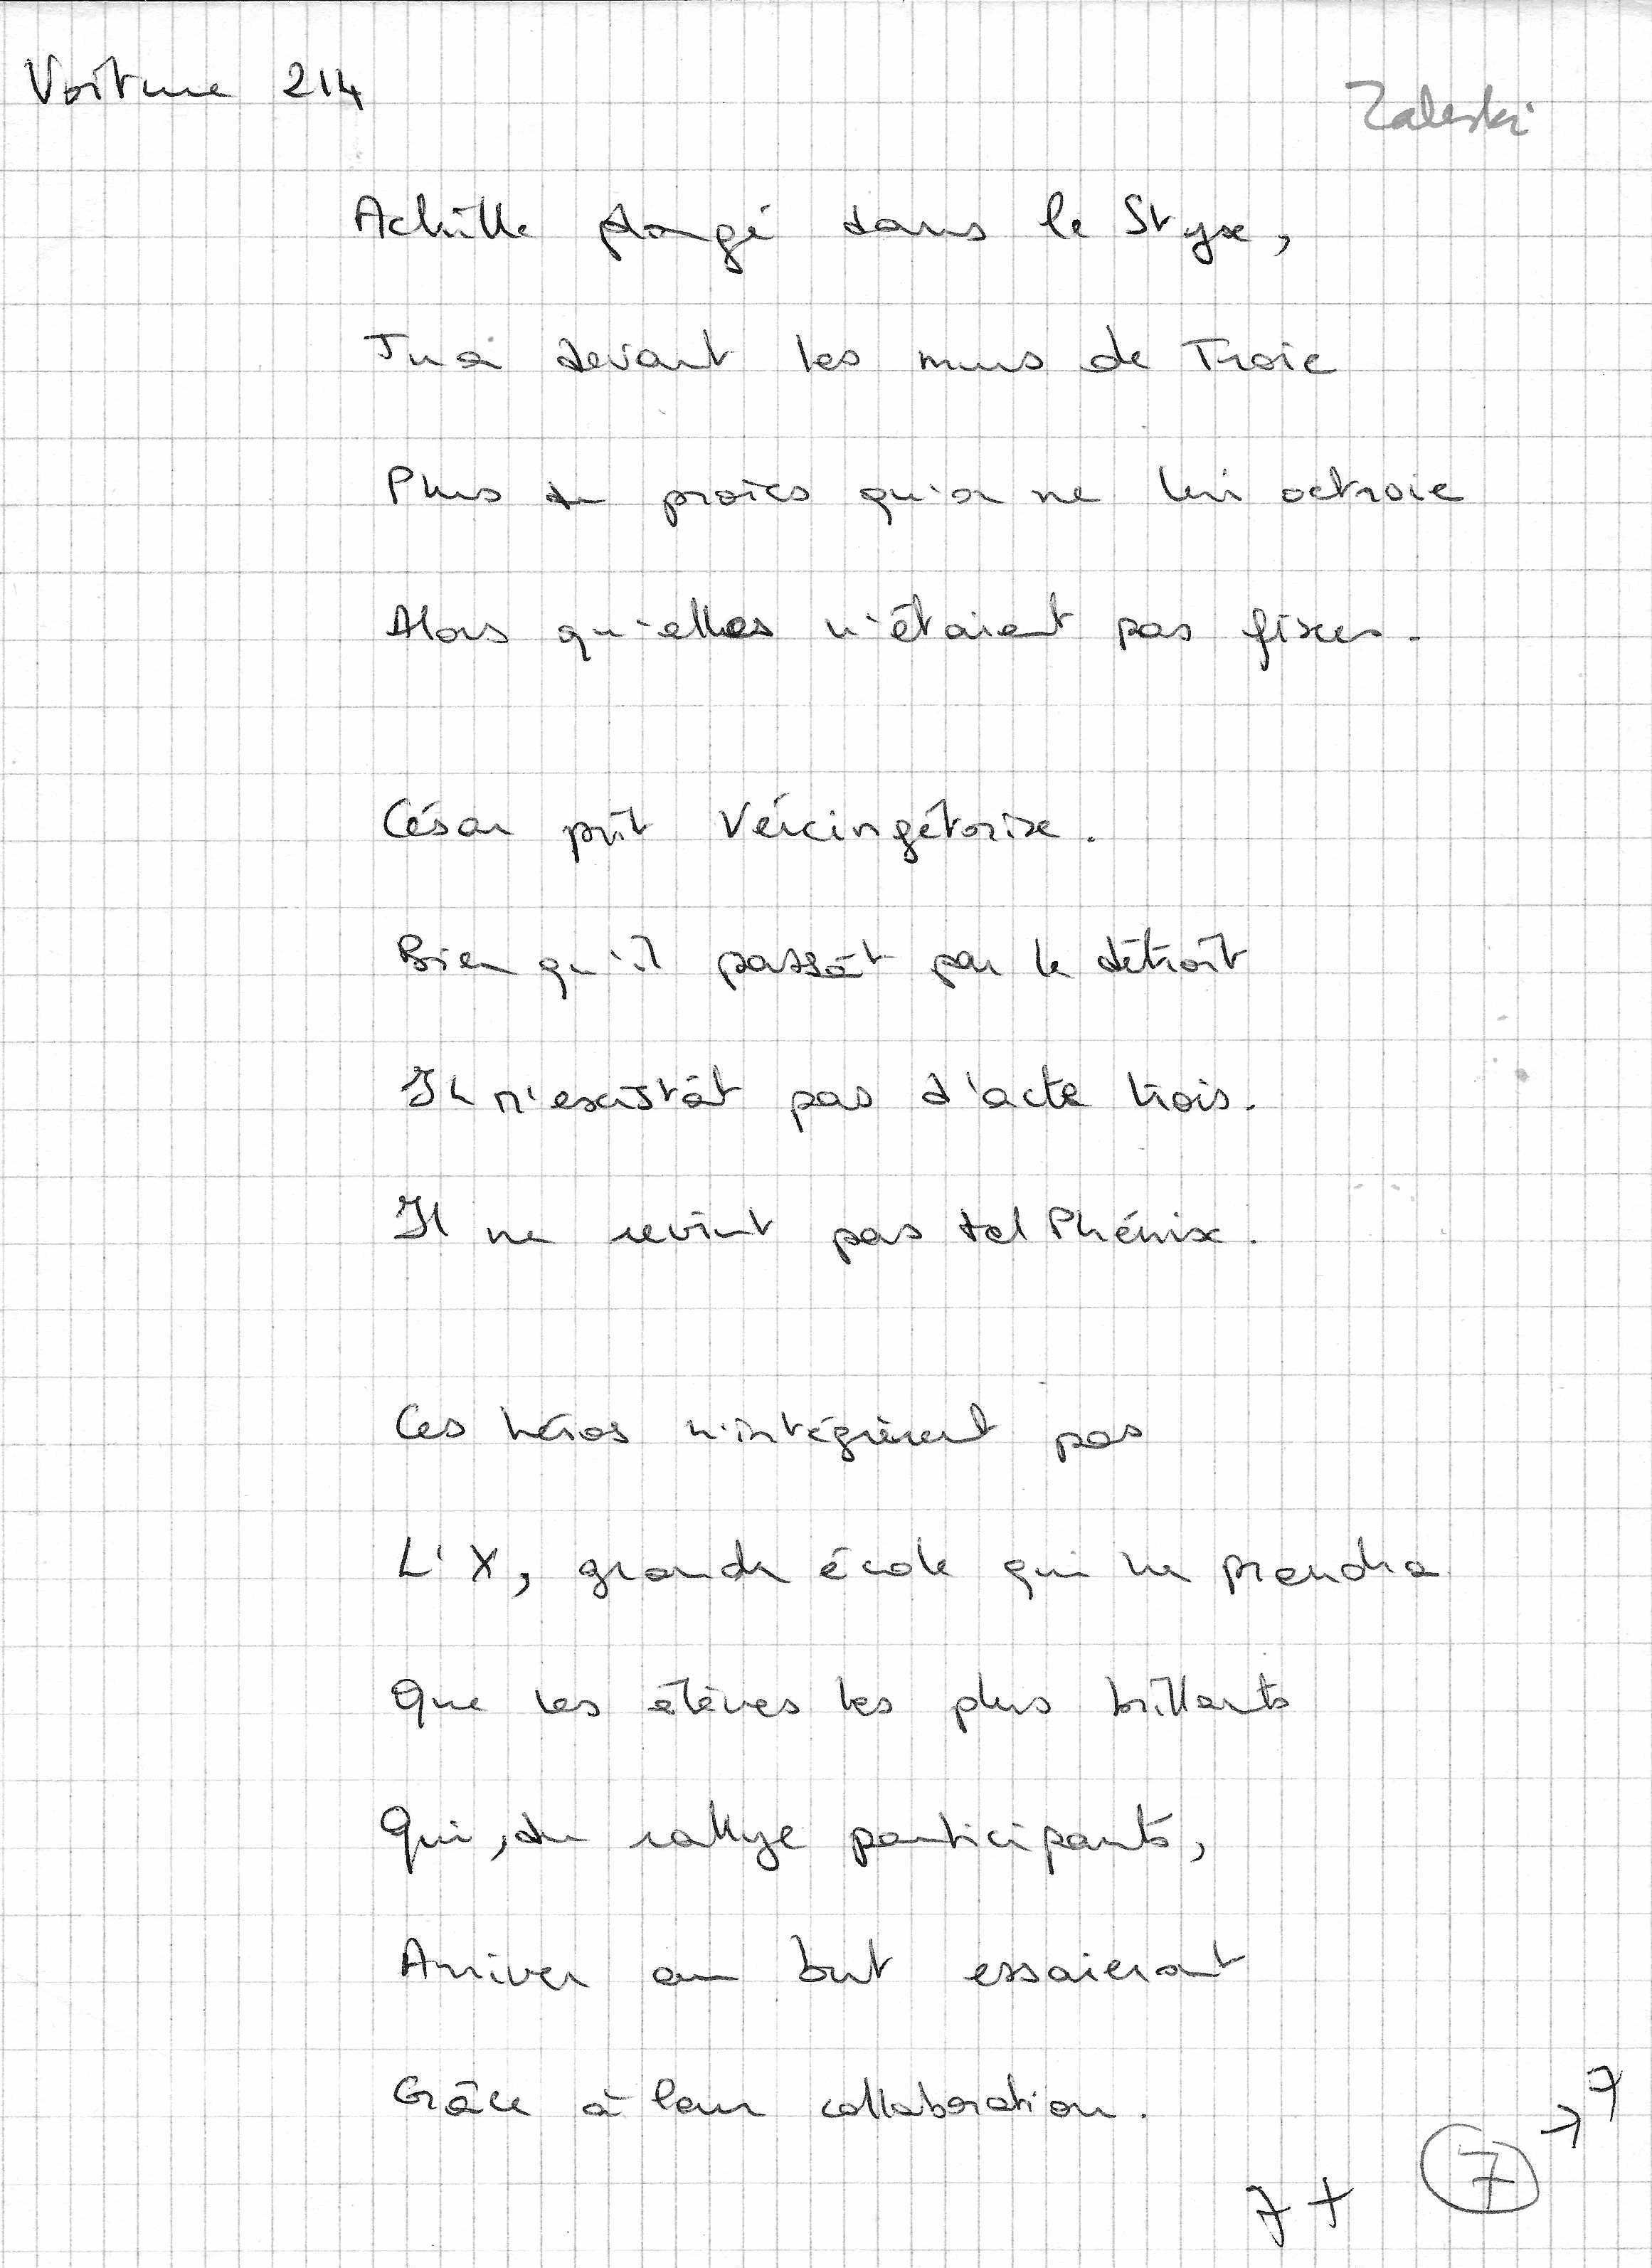 Voiture 214
Zaleski
Achille plongé dans le Styx,
Tua devant les murs de Troie
Plus de proies qu'on ne lui octroie
Alors qu'elles n'étaient pas fixes.
César prit Vercingétorix.
Bien qu'il passât par le détroit
Il n'existât pas d'acte trois.
Il ne revint pas tel Phénix.
Ces héros n'intégrèrent pas
L'X, grande école qui ne prendra
Que les élèves les plus brillants
Qui, du rallye participants,
Arriver au but essaieront
Grâce à leur collaboration.
7+ 7 → 7